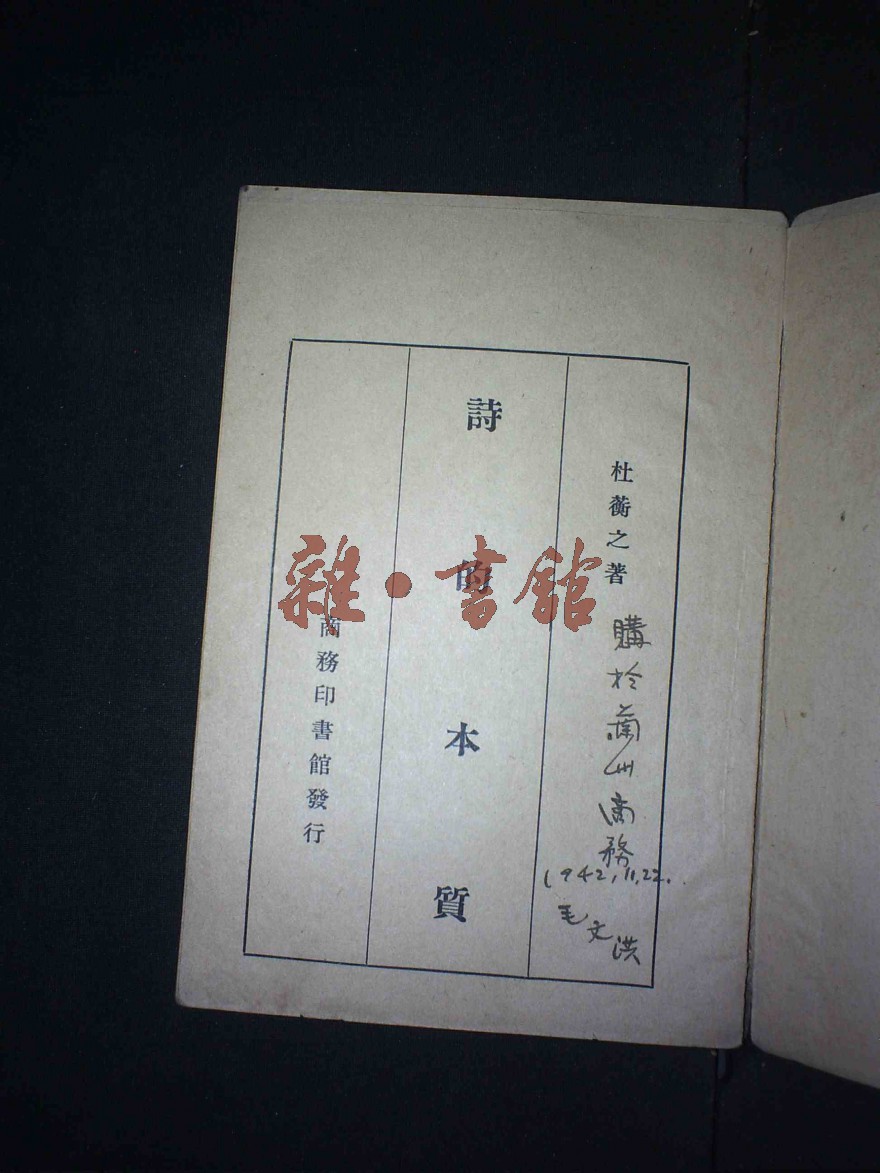 杜蘅之著
購於蘭州商務
1942,11,22.
毛文洪
詩的本質
商務印書館發行
雜·書館